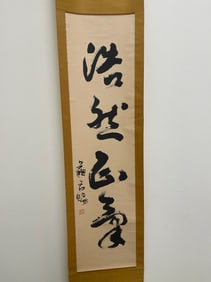 浩然正氣